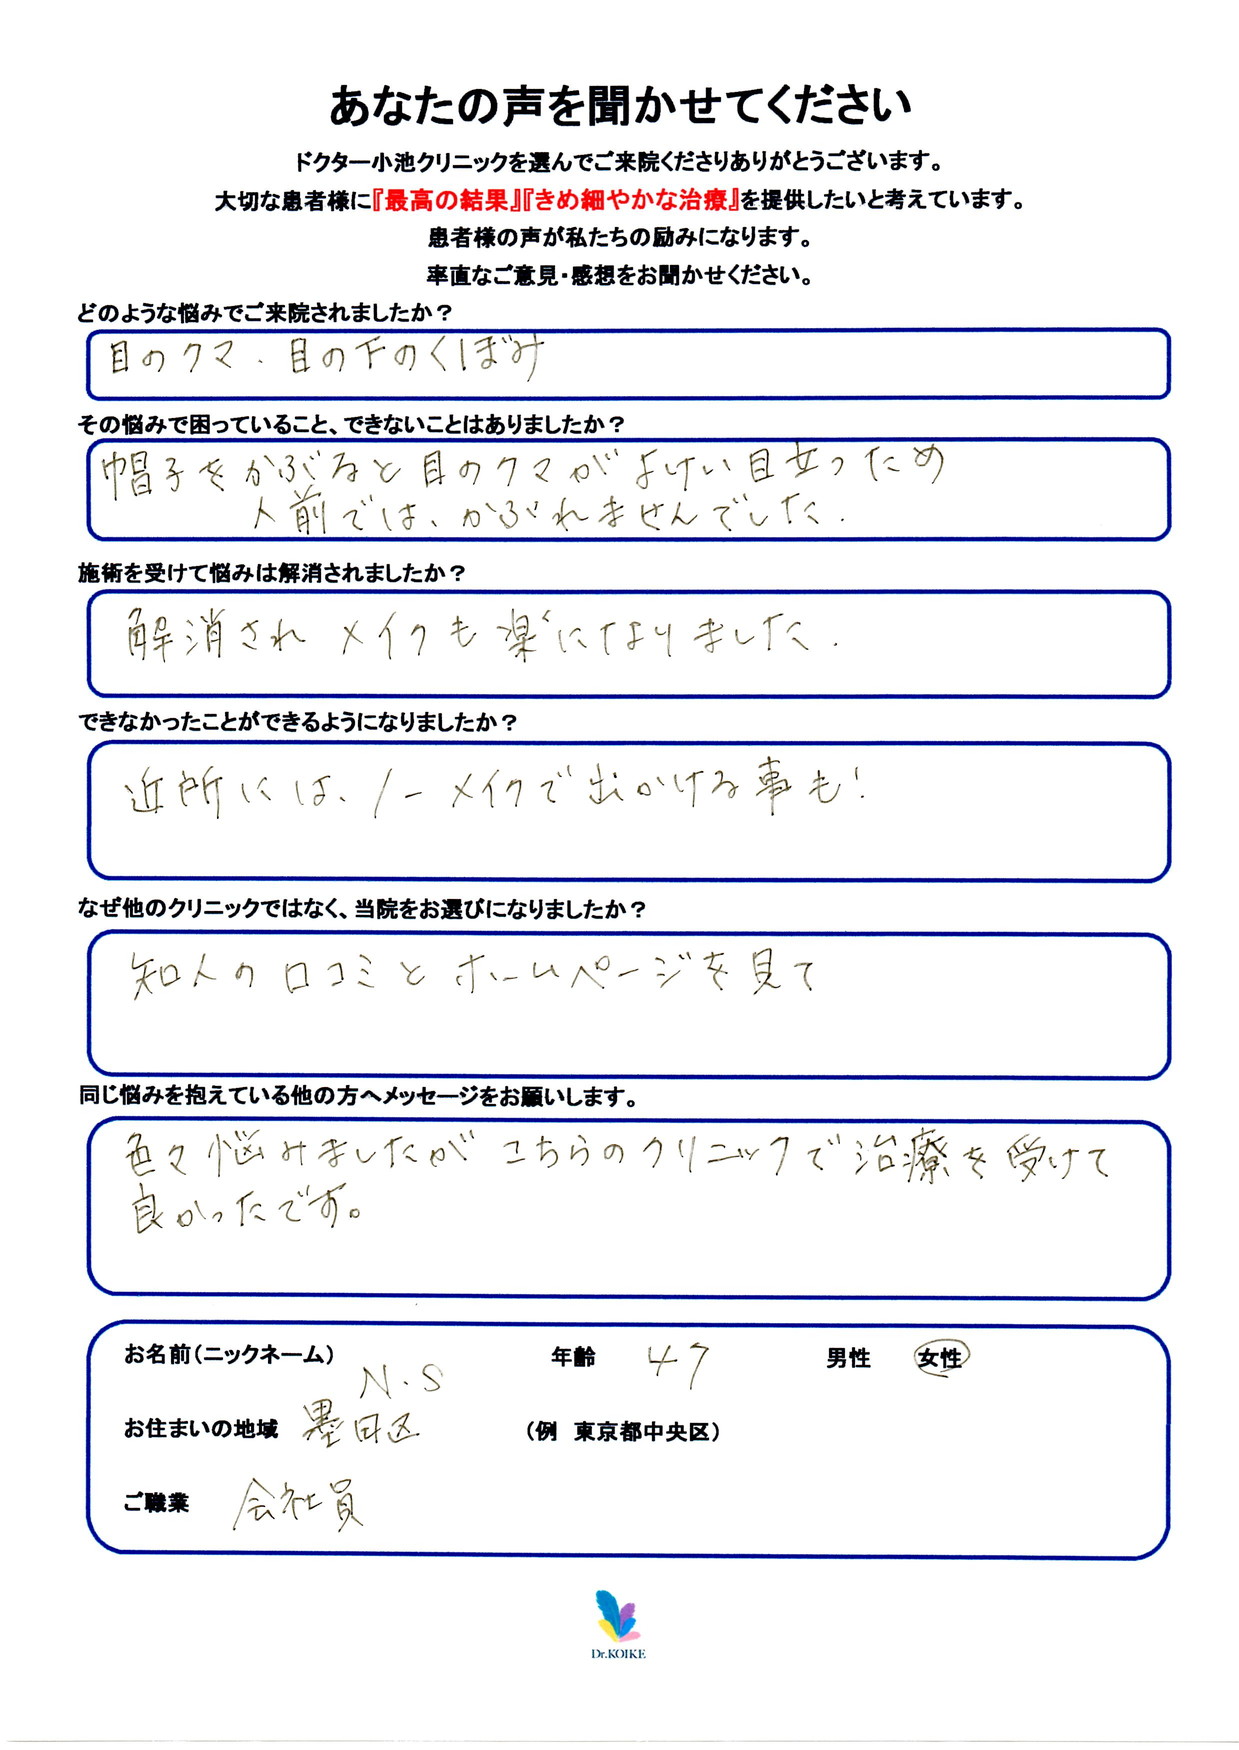 あなたの声を聞かせてください
ドクター小池クリニックを選んでご来院くださりありがとうございます。
大切な患者様に『最高の結果』『きめ細やかな治療』を提供したいと考えています。
患者様の声が私たちの励みになります。
率直なご意見・感想をお聞かせください。
どのような悩みでご来院されましたか？
目のクマ、目の下のくぼみ
その悩みで困っていること、できないことはありましたか？
帽子をかぶると目のクマがよけい目立つため
人前では、かぶれませんでした.
施術を受けて悩みは解消されましたか？
解消され メイクも楽になりました.
できなかったことができるようになりましたか？
近所には、ノーメイクで出かける事も!
なぜ他のクリニックではなく、当院をお選びになりましたか？
知人の口コミとホームページを見て
同じ悩みを抱えている他の方へメッセージをお願いします。
色々悩みましたがこちらのクリニックで治療を受けて
良かったです。
お名前(ニックネーム) N.S 年齢 47 男性 女性
お住まいの地域 墨田区 (例 東京都中央区)
ご職業 会社員
Dr.KOIKE